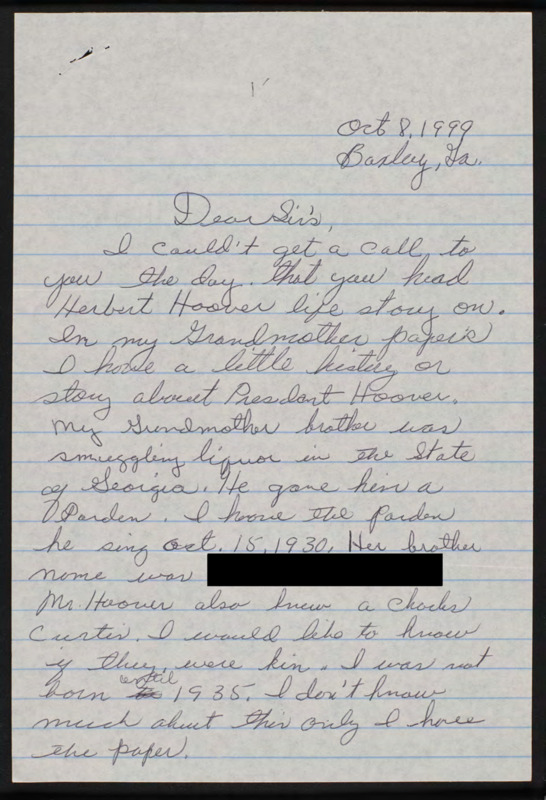 Oct 8, 1999
Baxley, Ga.
Dear Sir's,
I could't get a call to
you the day. that you head
Herbert Hoover life story on.
In my Grandmother paper's
I have a little history or
story about Presdant Hoover.
My Grandmother brother was
smuggling liquor in the State
of Georgia. He gave him a
Parden. I have the parden
he sing oct. 15, 1930. Her brother
name was
Mr. Hoover also knew a Charles
Curtis. I would like to know
if they were kin. I was not
born until 1935. I don't know
much about this only I have
the paper.